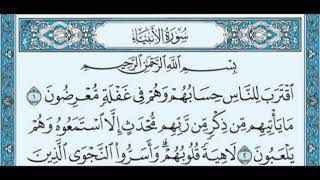 سُورَةُ الأَنبِيَاءِ
بِسْمِ اللَّهِ الرَّحْمَٰنِ الرَّحِيمِ
ٱقْتَرَبَ لِلنَّاسِ حِسَابُهُمْ وَهُمْ فِى غَفْلَةٍ مُّعْرِضُونَ ١
مَا يَأْتِيهِم مِّن ذِكْرٍ مِّن رَّبِّهِم مُّحْدَثٍ إِلَّا ٱسْتَمَعُوهُ وَهُمْ
يَلْعَبُونَ ٢ لَاهِيَةً قُلُوبُهُمْ ۗ وَأَسَرُّوا۟ ٱلنَّجْوَى ٱلَّذِينَ